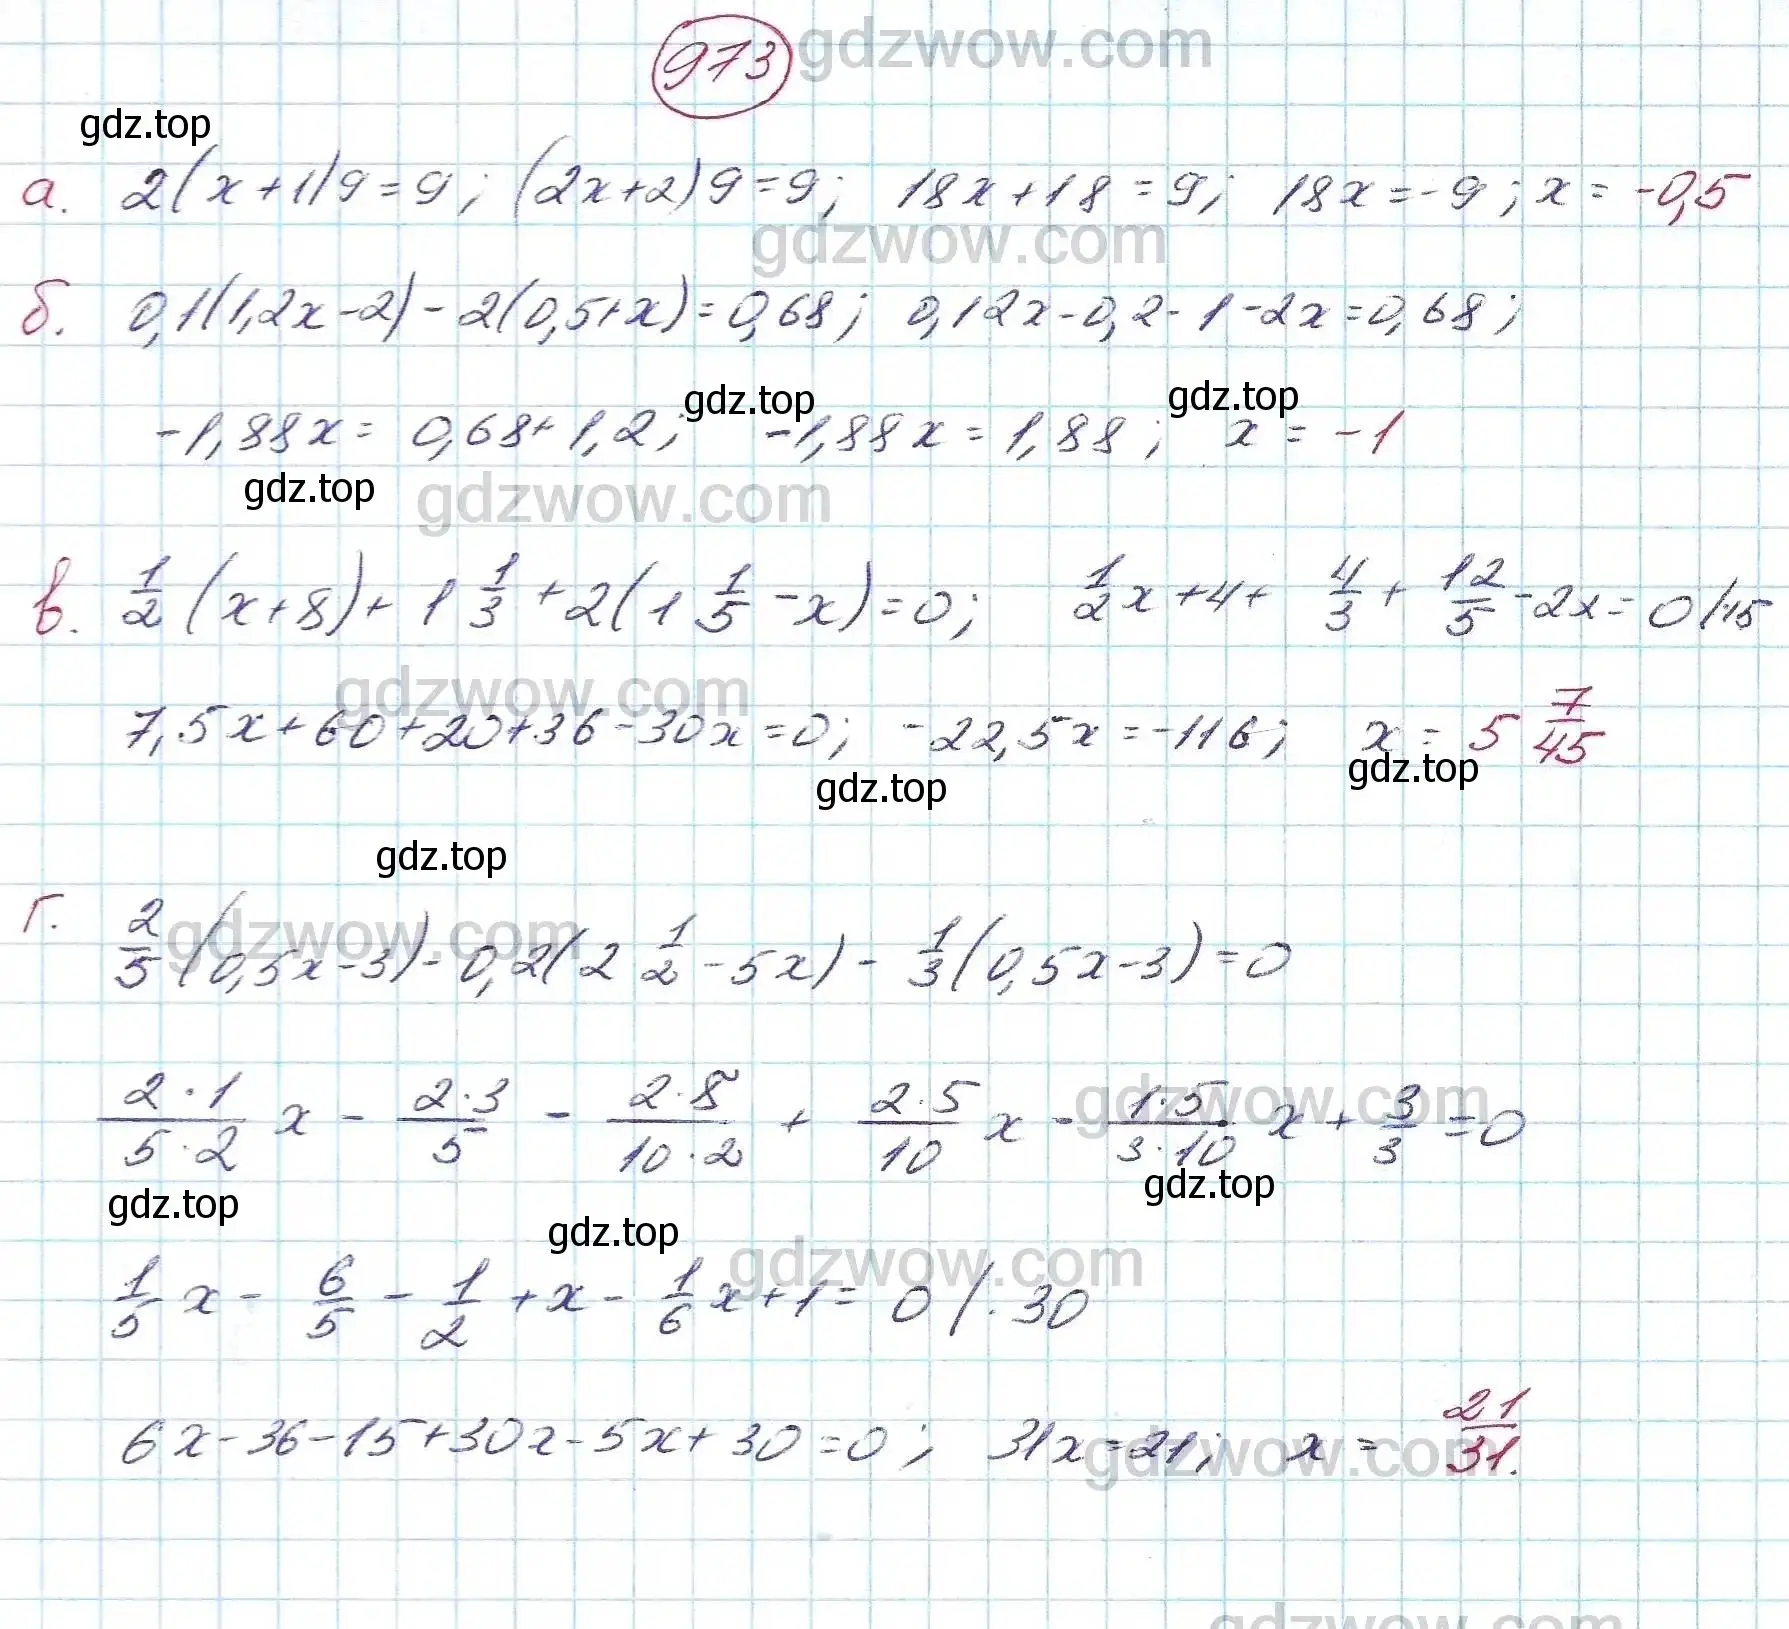 973 gdzwow.com
gdz.top
а. 2(x+1)9=9; (2x+2)9=9; 18x+18=9; 18x=-9; x=-0,5
gdzwow.com
б. 0,1(1,2x-2)-2(0,5+x)=0,68; 0,12x-0,2-1-2x=0,68;
gdz.top gdz.top
-1,88x=0,68+1,2; -1,88x=1,88; x=-1
gdz.top gdzwow.com
в. 1/2(x+8)+1 1/3+2(1 1/5-x)=0; 1/2x+4+4/3+12/5-2x=0/·15
gdzwow.com
7,5x+60+20+36-30x=0; -22,5x=-116; x=5 7/45
gdz.top gdz.top
gdz.top
г. 2/5(0,5x-3)-0,2(2 1/2-5x)-1/3(0,5x-3)=0
gdzwow.com
2·1/5·2 x - 2·3/5 - 2·5/10·2 + 2·5/10 x - 1·5/3·10 x + 3/3 = 0
gdzwow.com
gdz.top gdz.top gdz.top
gdzwow.com
1/5x-6/5-1/2+x-1/6x+1=0/·30
6x-36-15+30x-5x+30=0; 31x=21; x=21/31.
gdzwow.com
gdzwow.com